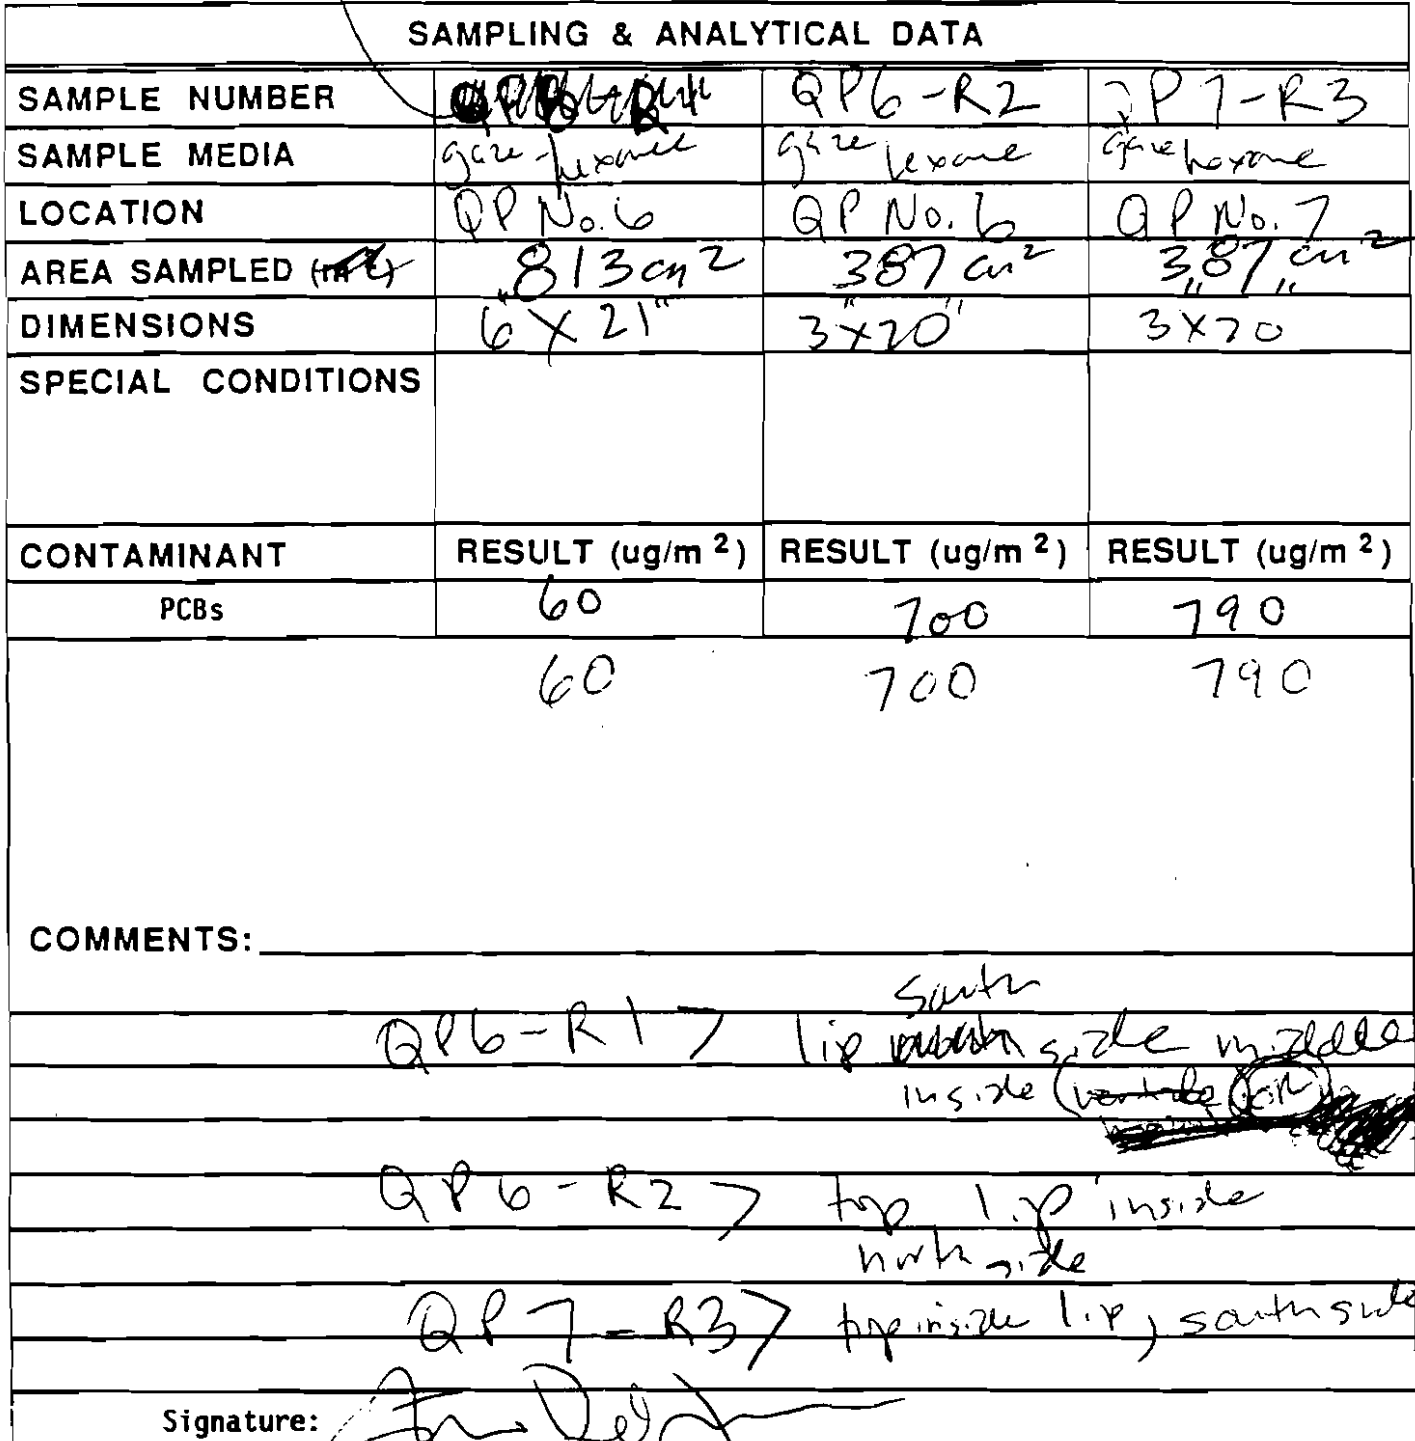 SAMPLING & ANALYTICAL DATA
SAMPLE NUMBER QP6-R2 QP7-R3
SAMPLE MEDIA gaze-hexane gaze hexane gaze hexane
LOCATION QP No. 6 QP No. 6 QP No. 7
AREA SAMPLED (m2) 813 cm2 387 cm2 387 cm2
DIMENSIONS 6" X 21" 3"x20" 3"x20"
SPECIAL CONDITIONS
CONTAMINANT RESULT (ug/m 2) RESULT (ug/m 2) RESULT (ug/m 2)
PCBs 60 700 790
60 700 790
COMMENTS:
south
QP6-R1 > lip side middle
inside
QP6-R2 > top lip inside
north side
QP7-R3 > top inside lip, south side
Signature: